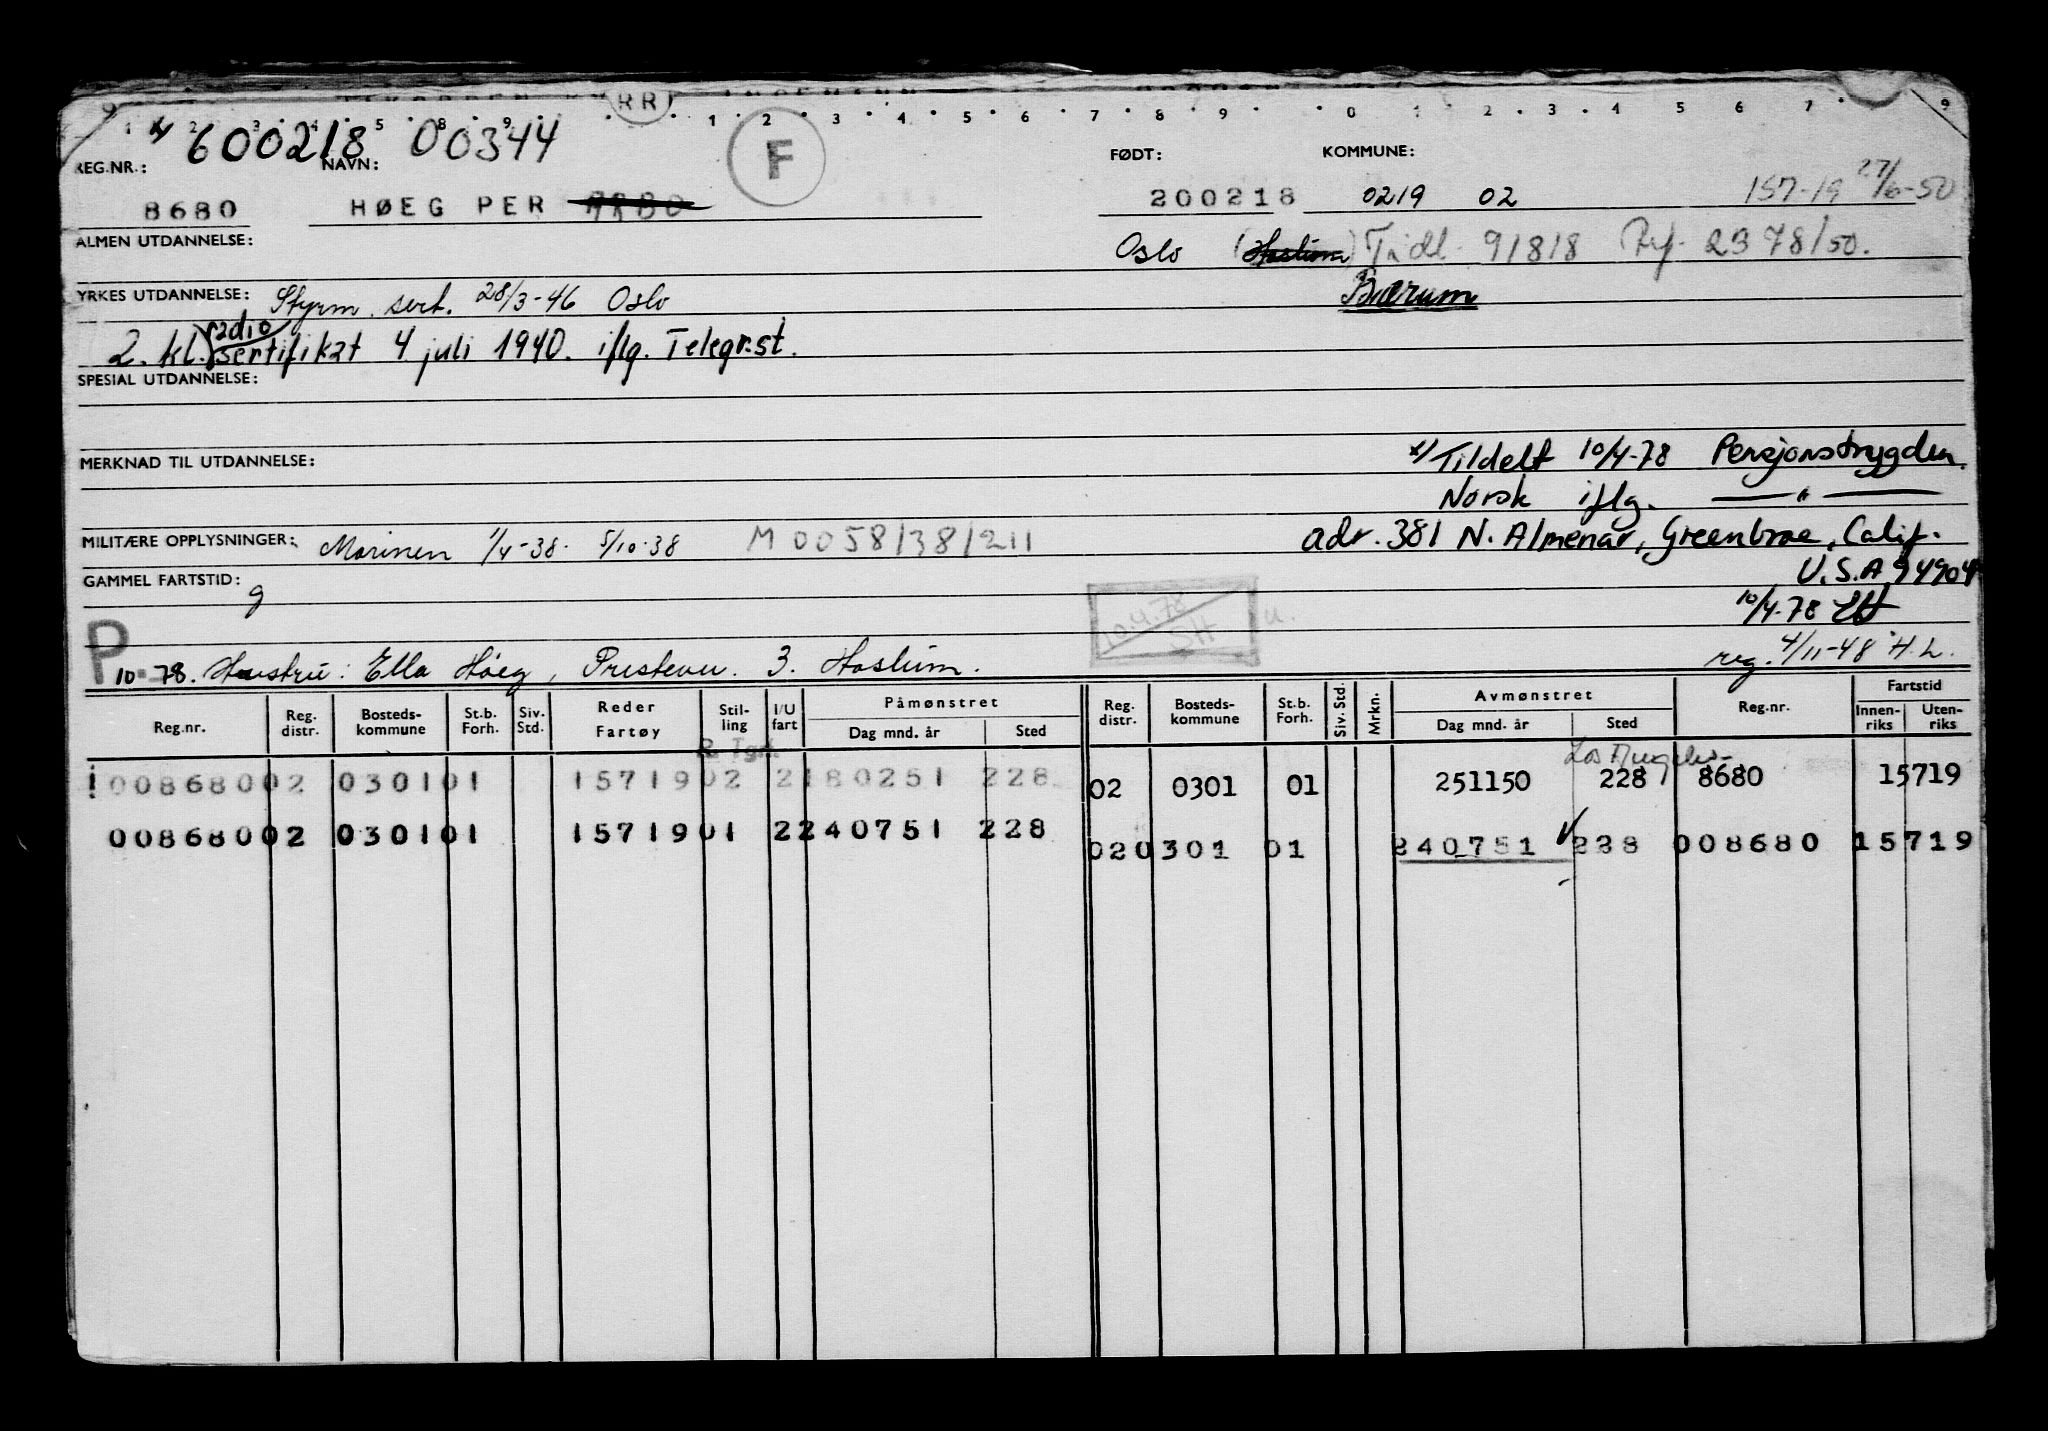 600218 00344
REG.NR.: NAVN: F FØDT: KOMMUNE:
8680 HØEG PER ARBO 200218 0219 02 157-19 27/6-50
ALMEN UTDANNELSE: Oslo (Haslum) Tidl. 91818 Ref. 2378/50.
YRKES UTDANNELSE: Styrm. sert. 28/3-46 Oslo Bærum
2. kl. radio sertifikat 4 juli 1940. iflg. Telegr.st.
SPESIAL UTDANNELSE:
MERKNAD TIL UTDANNELSE: x) Tildelt 10/4-78 Pensjonstrygden.
Norsk iflg. — " —
MILITÆRE OPPLYSNINGER: Marinen 1/4-38. 5/10-38 M 0058/38/211 adr. 381 N. Almenar, Greenbrae, Calif.
GAMMEL FARTSTID: g U.S.A 94904
10.4.78 SH 10/4-78
P 10-78. Hustru: Ella Höeg, Prestevn. 3. Haslum. reg. 4/11-48 H.L.
Reg.nr. Reg. distr. Bosteds-kommune St.b. Forh. Siv. Std. Reder Fartøy Stil-ling I/U fart Påmønstret Dag mnd. år Sted Reg. distr. Bosteds-kommune St.b. Forh. Siv. Std. Mrkn. Avmønstret Dag mnd. år Sted Reg.nr. Fartstid Innen-riks Uten-riks
Los Angeles
00868002 030101 1571902 2180251 228 02 0301 01 251150 228 8680 15719
00868002 030101 1571901 2240751 228 020301 01 240751 228 008680 15719